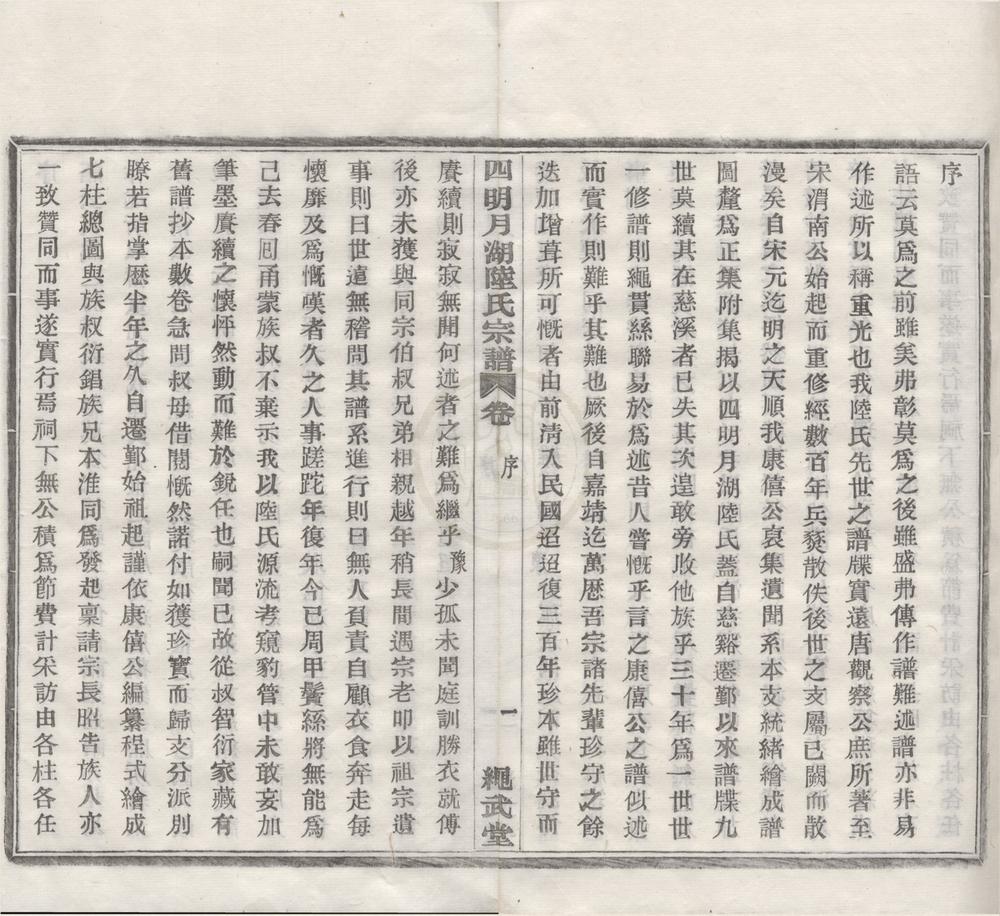 序
語云莫爲之前雖美弗彰莫爲之後雖盛弗傳作譜難述譜亦非易
作述所以稱重光也我陸氏先世之譜牒實遠唐觀察公庶所著至
宋渭南公始起而重修經數百年兵燹散佚後世之支屬已闕而散
漫矣自宋元迄明之天順我康僖公裒集遺聞系本支統緒繪成譜
圖釐爲正集附集揭以四明月湖陸氏蓋自慈谿遷鄞以來譜牒九
世莫續其在慈溪者已失其次遑敢旁收他族乎三十年爲一世世
一修譜則繩貫絲聯易於爲述昔人嘗慨乎言之康僖公之譜似述
而實作則難乎其難也厥後自嘉靖迄萬厯吾宗諸先輩珍守之餘
迭加增葺所可慨者由前清入民國迢迢復三百年珍本雖世守而
四明月湖陸氏宗譜 卷 序 一 繩武堂
賡續則寂寂無聞何述者之難爲繼乎豫少孤未聞庭訓勝衣就傅
後亦未獲與同宗伯叔兄弟相親越年稍長間遇宗老叩以祖宗遺
事則曰世遠無稽問其譜系進行則曰無人負責自顧衣食奔走每
懷靡及爲慨嘆者久之人事蹉跎年復年今已周甲鬢絲將無能爲
己去春囘甬蒙族叔不棄示我以陸氏源流考窺豹管中未敢妄加
筆墨賡續之懷怦然動而難於銳任也嗣聞已故從叔智衍家藏有
舊譜抄本數卷急問叔母借閱慨然諾付如獲珍寶而歸支分派別
瞭若指掌厯半年之久自遷鄞始祖起謹依康僖公編纂程式繪成
七柱總圖與族叔衍錩族兄本淮同爲發起稟請宗長昭告族人亦
一致贊同而事遂實行焉祠下無公積爲節費計采訪由各柱各任